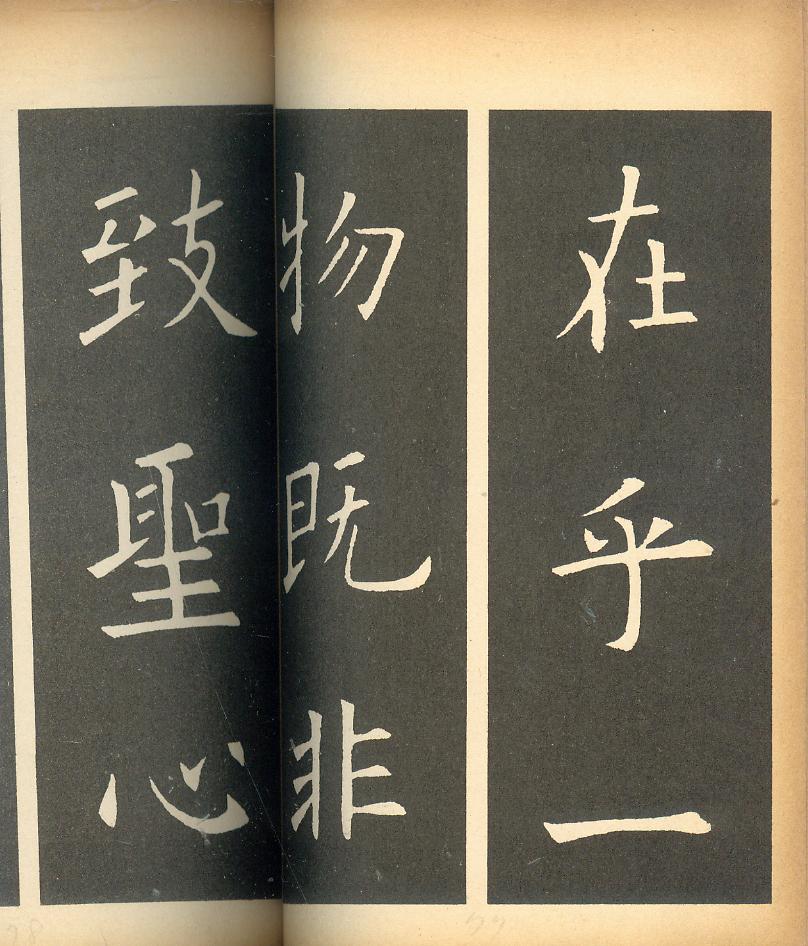 在乎一
物既非
致聖心